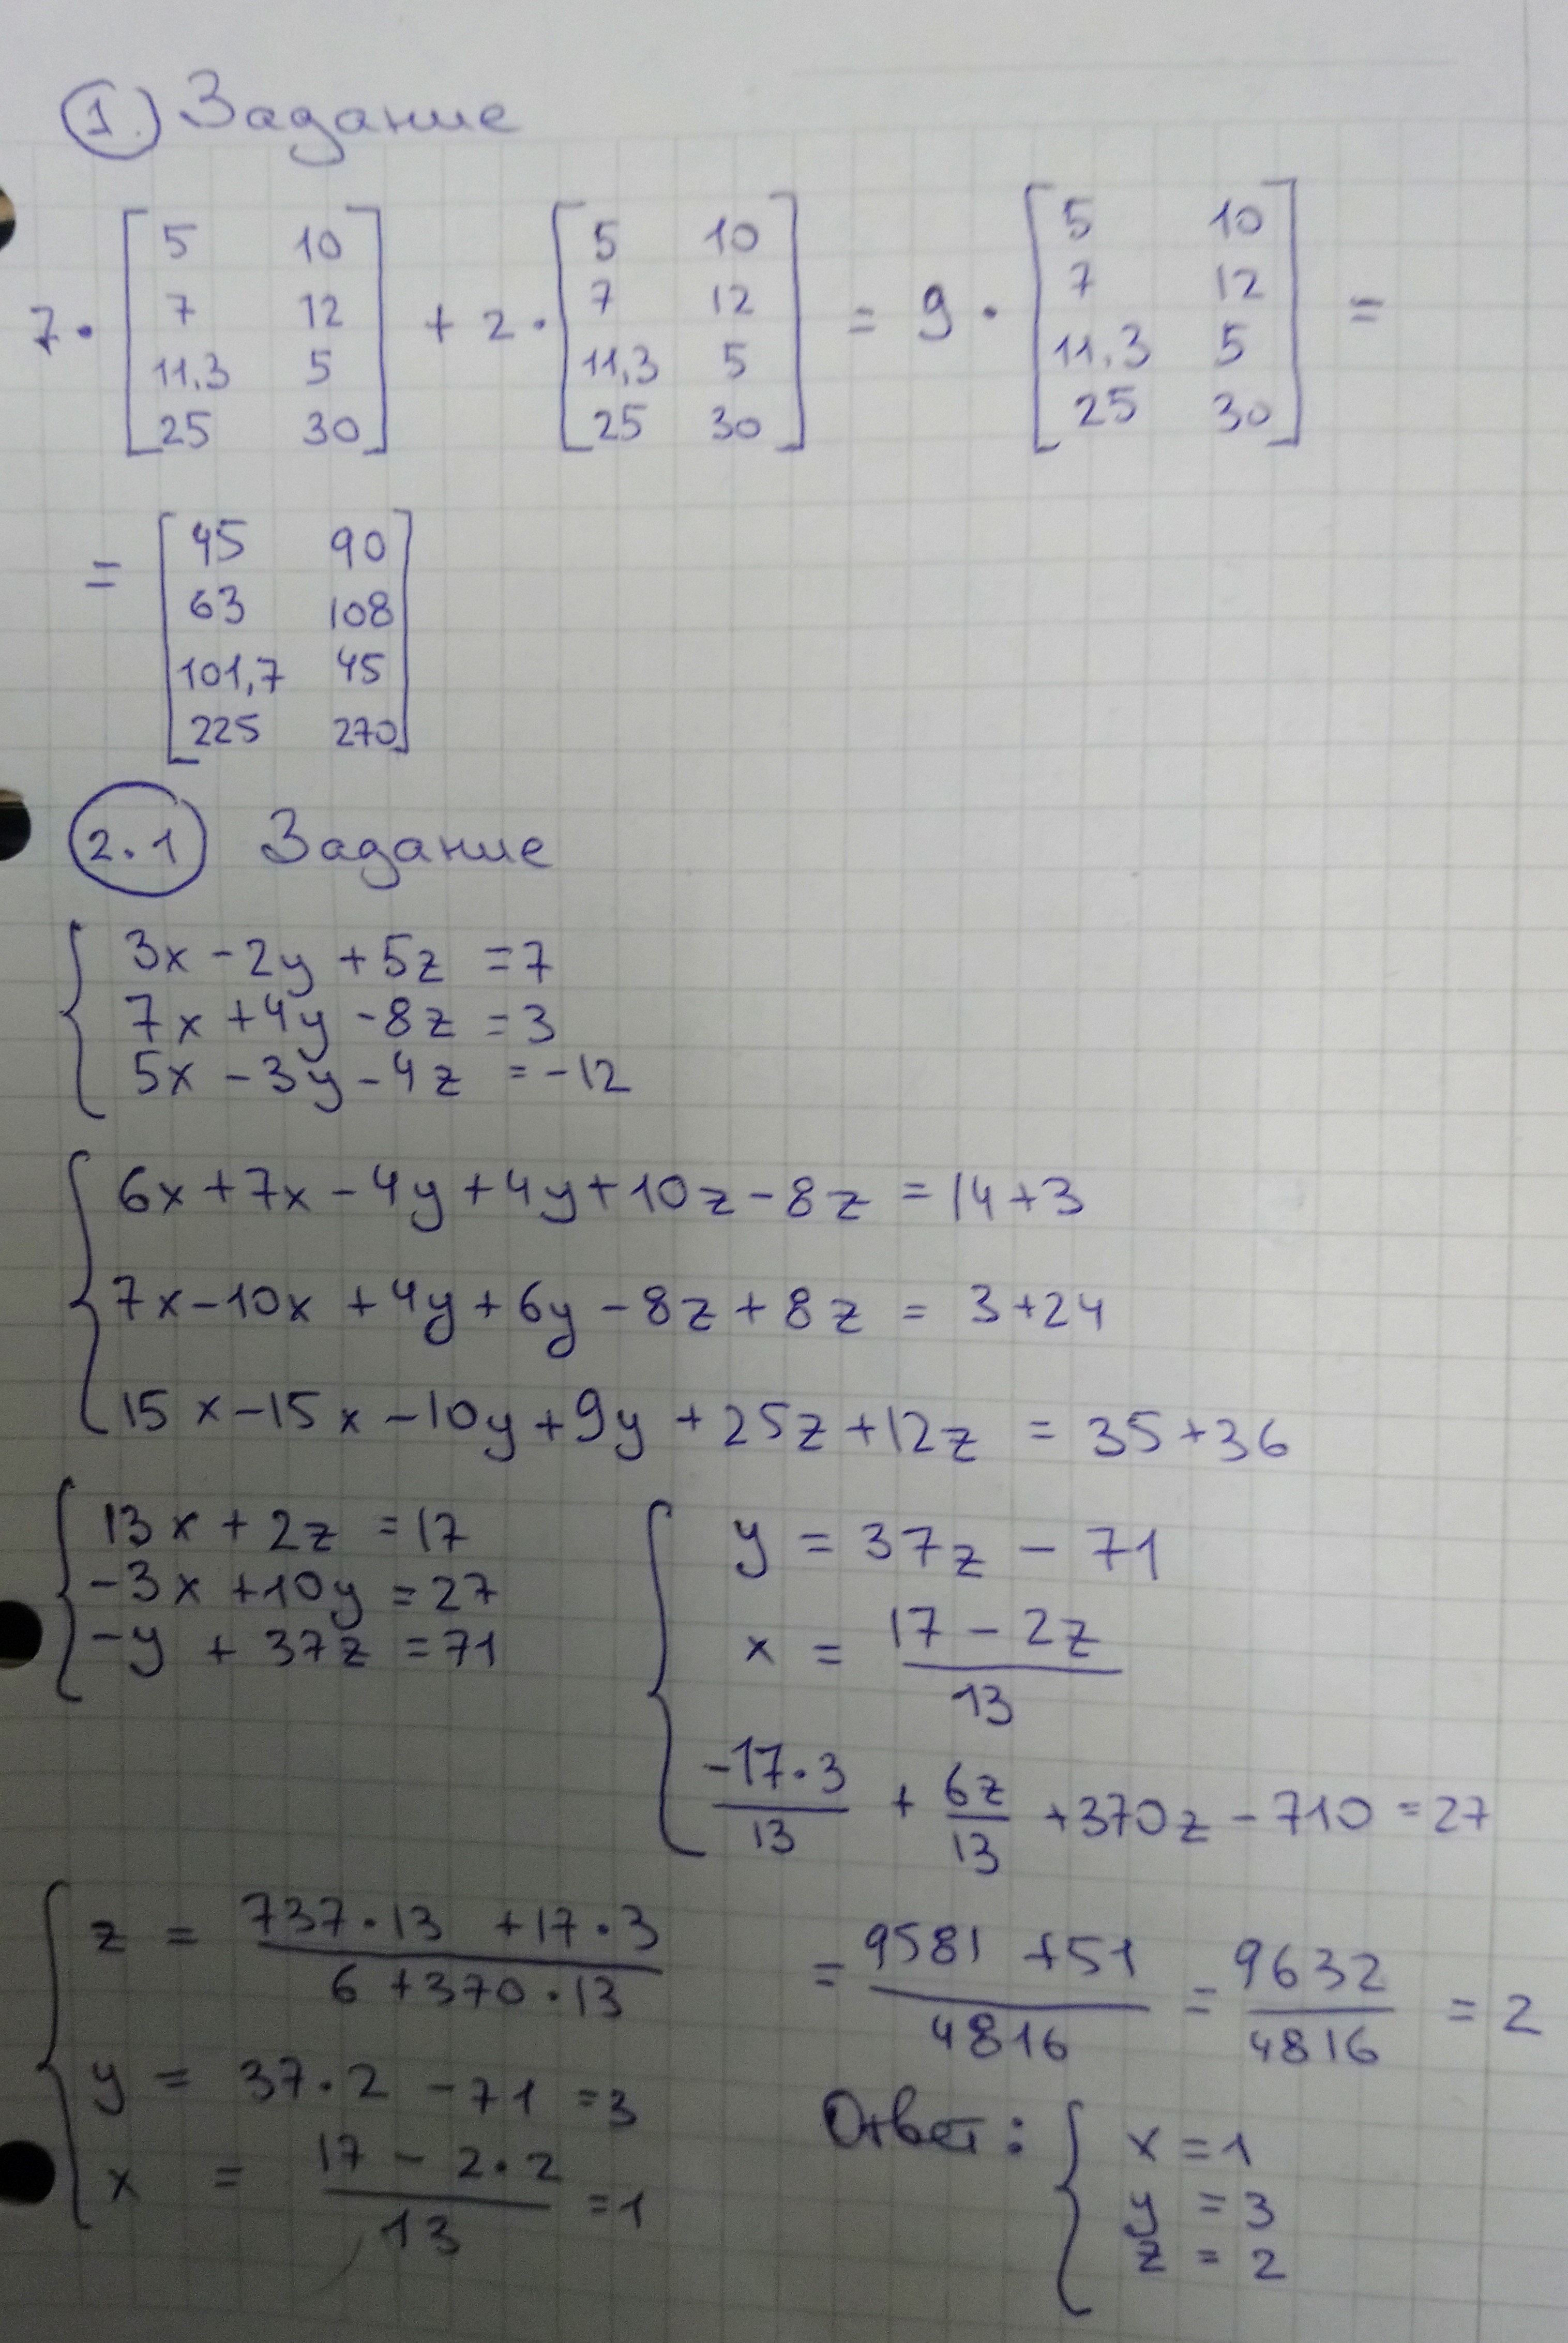 1. Задание
7 · [5 10; 7 12; 11,3 5; 25 30] + 2 · [5 10; 7 12; 11,3 5; 25 30] = 9 · [5 10; 7 12; 11,3 5; 25 30] =
= [45 90; 63 108; 101,7 45; 225 270]
2.1 Задание
3x - 2y + 5z = 7
7x + 4y - 8z = 3
5x - 3y - 4z = -12
6x + 7x - 4y + 4y + 10z - 8z = 14 + 3
7x - 10x + 4y + 6y - 8z + 8z = 3 + 24
15x - 15x - 10y + 9y + 25z + 12z = 35 + 36
13x + 2z = 17
-3x + 10y = 27
-y + 37z = 71
y = 37z - 71
x = (17 - 2z)/13
(-17·3)/13 + 6z/13 + 370z - 710 = 27
z = (737·13 + 17·3)/(6 + 370·13) = (9581 + 51)/4816 = 9632/4816 = 2
y = 37·2 - 71 = 3
x = (17 - 2·2)/13 = 1
Ответ: x = 1
y = 3
z = 2